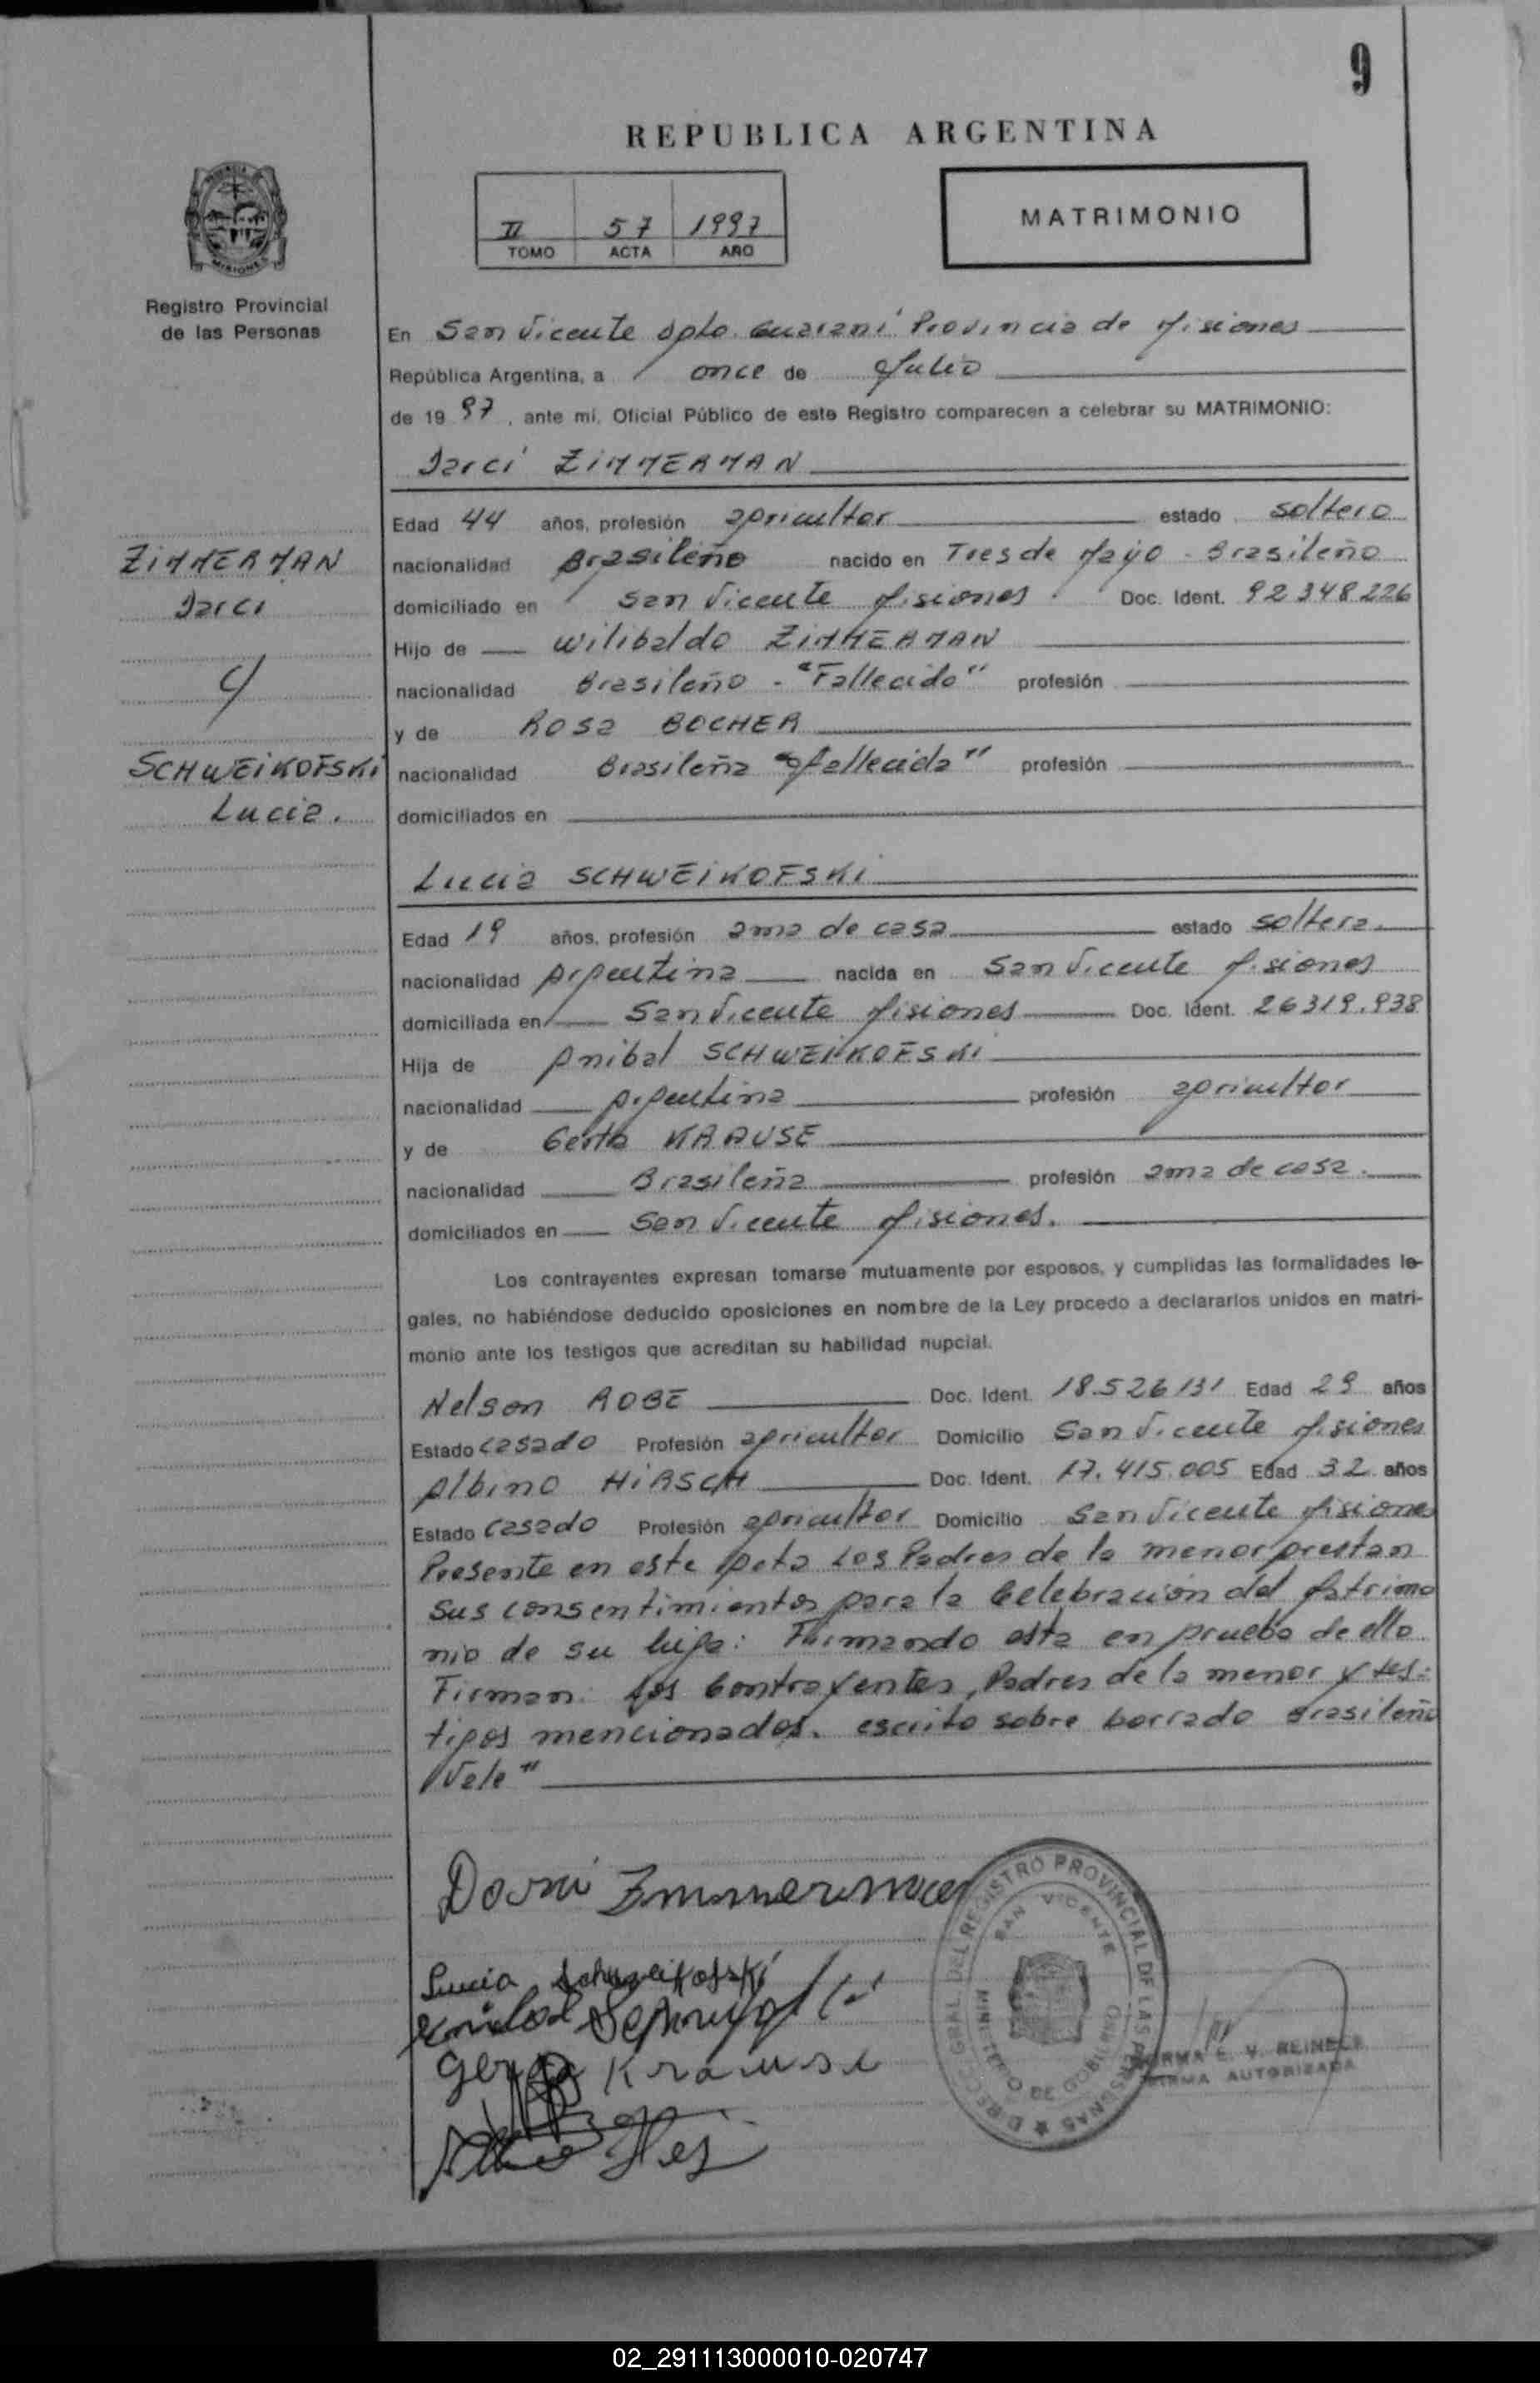 9
REPUBLICA ARGENTINA
II 57 1997
TOMO ACTA AÑO
MATRIMONIO
PROVINCIA DE MISIONES
Registro Provincial
de las Personas
En San Vicente Dpto. Guaraní Provincia de Misiones
República Argentina, a once de Julio
de 1997, ante mí, Oficial Público de este Registro comparecen a celebrar su MATRIMONIO:
Darci ZIMMERMAN
Edad 44 años, profesión agricultor estado soltero
ZIMMERMAN
nacionalidad Brasileño nacido en Tres de Mayo - Brasileño
Darci
domiciliado en San Vicente Misiones. Doc. Ident. 92348226
Hijo de Wilibaldo ZIMMERMAN
y
nacionalidad Brasileño - "Fallecido" profesión
y de Rosa BOCHER
SCHWEIKOFSKI
nacionalidad Brasileña "Fallecida" profesión
Lucia.
domiciliados en
Lucia SCHWEIKOFSKI
Edad 19 años, profesión ama de casa estado soltera.
nacionalidad Argentina nacida en San Vicente Misiones
domiciliada en San Vicente Misiones Doc. Ident. 26319.938
Hija de Anibal SCHWEIKOFSKI
nacionalidad Argentina profesión agricultor
y de Gerta KRAUSE
nacionalidad Brasileña profesión ama de casa.
domiciliados en San Vicente Misiones.
Los contrayentes expresan tomarse mutuamente por esposos, y cumplidas las formalidades le-
gales, no habiéndose deducido oposiciones en nombre de la Ley procedo a declararlos unidos en matri-
monio ante los testigos que acreditan su habilidad nupcial.
Nelson ROBE Doc. Ident. 18.526131 Edad 29 años
Estado casado Profesión agricultor Domicilio San Vicente Misiones
Albino HIRSCH Doc. Ident. 17.415.005 Edad 32 años
Estado casado Profesión agricultor Domicilio San Vicente Misiones
Presente en este Acta Los Padres de la menor prestan
sus consentimientos para la Celebración del Matrimo
nio de su hija: Firmando esta en prueba de ello
Firman: Los Contrayentes, Padres de la menor y tes-
tigos mencionados. escrito sobre borrado Brasileño
Vale"
Darci Zimmerman
Lucia Schweikofski
Gerta Krause
DIRECC. GRAL. DEL REGISTRO PROVINCIAL DE LAS PERSONAS
SAN VICENTE
MINISTERIO DE GOBIERNO
NORMA E. V. REINECK
FIRMA AUTORIZADA
02_291113000010-020747